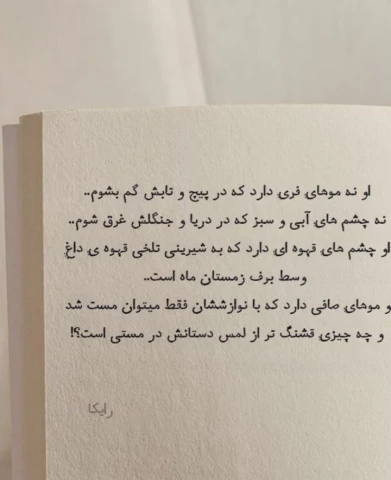 او نه موهای فری دارد که در پیچ و تابش گم بشوم..
نه چشم های آبی و سبز که در دریا و جنگلش غرق شوم..
او چشم های قهوه ای دارد که به شیرینی تلخی قهوه ی داغ
وسط برف زمستان ماه است..
و موهای صافی دارد که با نوازششان فقط میتوان مست شد
و چه چیزی قشنگ تر از لمس دستانش در مستی است؟!
رایکا